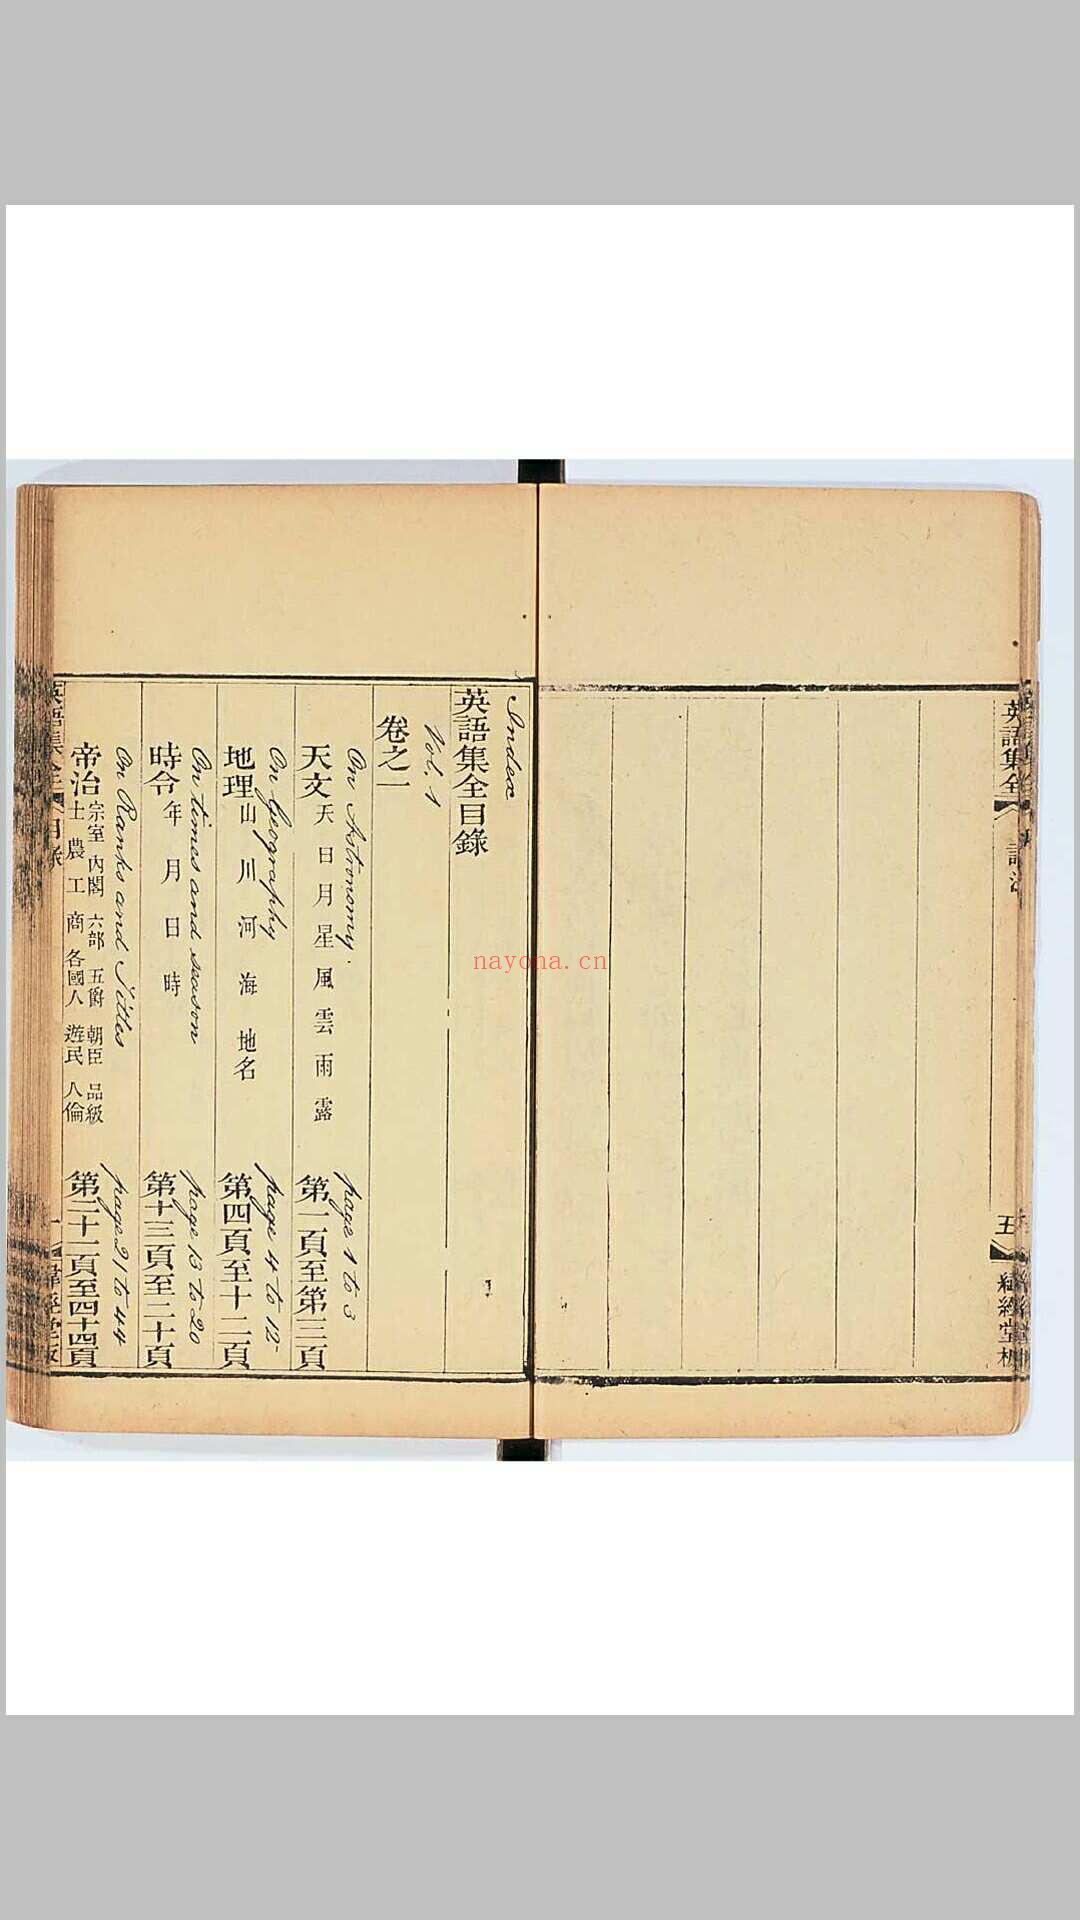 英語集全
讀法
五
緯經堂板
Index
英語集全目錄
Vol. 1
卷之一
On Astronomy. page 1 to 3
天文 天日月星風雲雨露 第一頁至第三頁
On Geography page 4 to 12
地理 山川河海地名 第四頁至十二頁
On times and season page 13 to 20
時令 年月日時 第十三頁至二十頁
On Ranks and Tittles page 21 to 44
帝治 宗室 內閣 六部 五爵 朝臣 品級
士農工商 各國人 遊民 人倫 第二十一頁至四十四頁
英語集全 目錄
一
nayona.cn